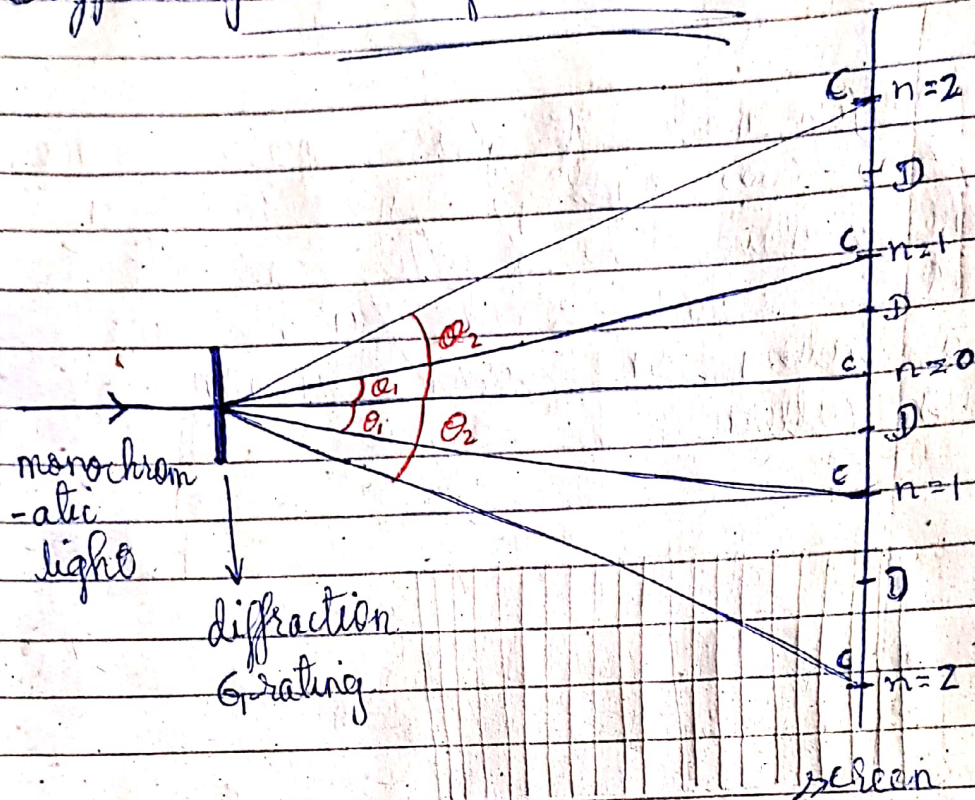 C n=2
D
C n=1
D
θ2
C n=0
θ1
θ1
θ2
D
C n=1
monochrom
-atic
light
D
diffraction
Grating
C n=2
screen